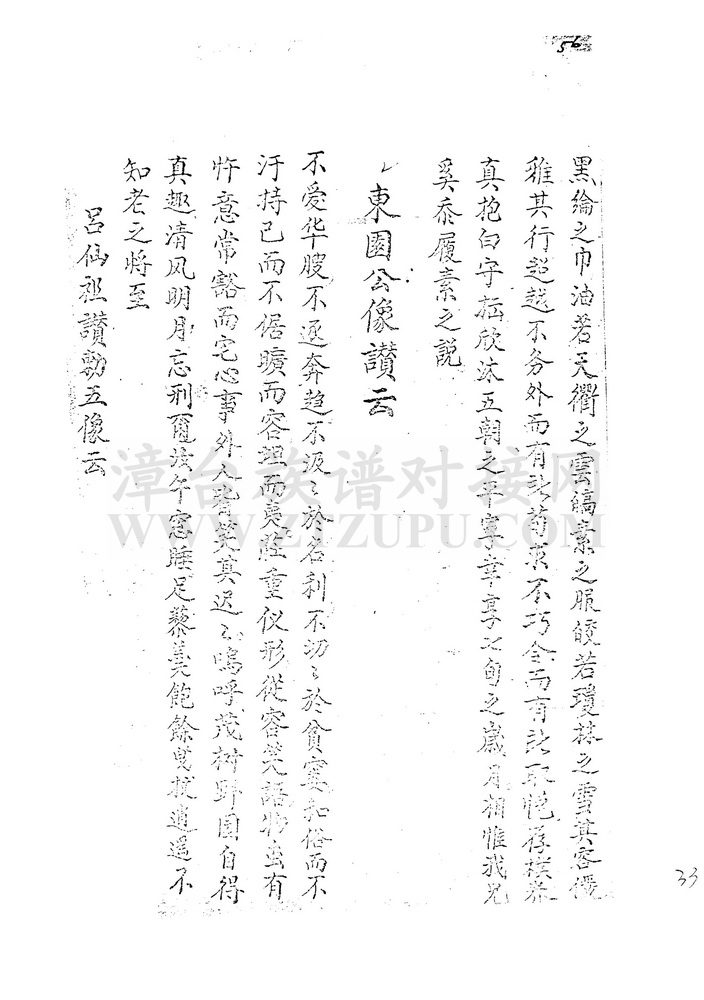 56
黑綸之巾油若天衢之雲縞素之服皎若瓊林之雪其容優
雅其行超越不务外而有計苟求不巧全而有計取恺存樸养
真抱白守 欣沐五朝之平寧幸享七旬之歲月相惟我兄
奚忝履素之說
東園公像讃云
不爱华膄不逐奔趋不汲〻於名利不切〻於貧寠和俗而不
汙持己而不倨曠而容坦而夷莊重仪形從容笑語物虽有
忤意常豁而宅心事外人皆笑其迟〻嗚呼茂树野園自得
真趣清风明月忘利 午窓睡足藜羹飽餘曳杖逍遥不
知老之將至
呂仙祖讃勅五像云
33
漳台族谱对接网
WWW.ZTZUPU.COM